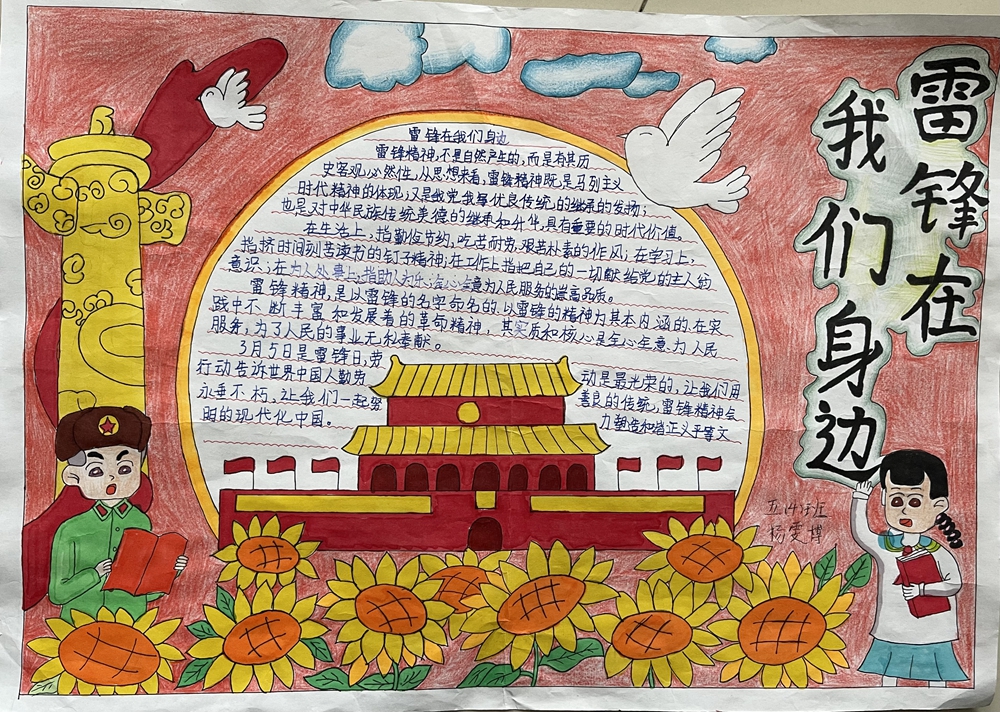 雷锋在
我们身边
雷锋在我们身边
雷锋精神,不是自然产生的,而是有其历
史客观必然性,从思想来看,雷锋精神既是马列主义
时代精神的体现;又是我党我军优良传统的继承的发扬;
也是对中华民族传统美德的继承和升华,具有重要的时代价值。
在生活上,指勤俭节约,吃苦耐劳,艰苦朴素的作风;在学习上,
指挤时间刻苦读书的钉子精神;在工作上指把自己的一切献给党的主人翁
意识;在为人处事上,指助人为乐,全心全意为人民服务的崇高品质。
雷锋精神,是以雷锋的名字命名的.以雷锋的精神为其本内涵的.在实
践中不断丰富和发展着的革命精神,其实质和核心是全心全意为人民
服务,为了人民的事业无私奉献。
3月5日是雷锋日,劳动是最光荣的,让我们用
行动告诉世界中国人勤劳善良的传统,雷锋精神会
永垂不朽,让我们一起努力塑造和谐正义平等文
明的现代化中国。
五(4)班
杨雯博